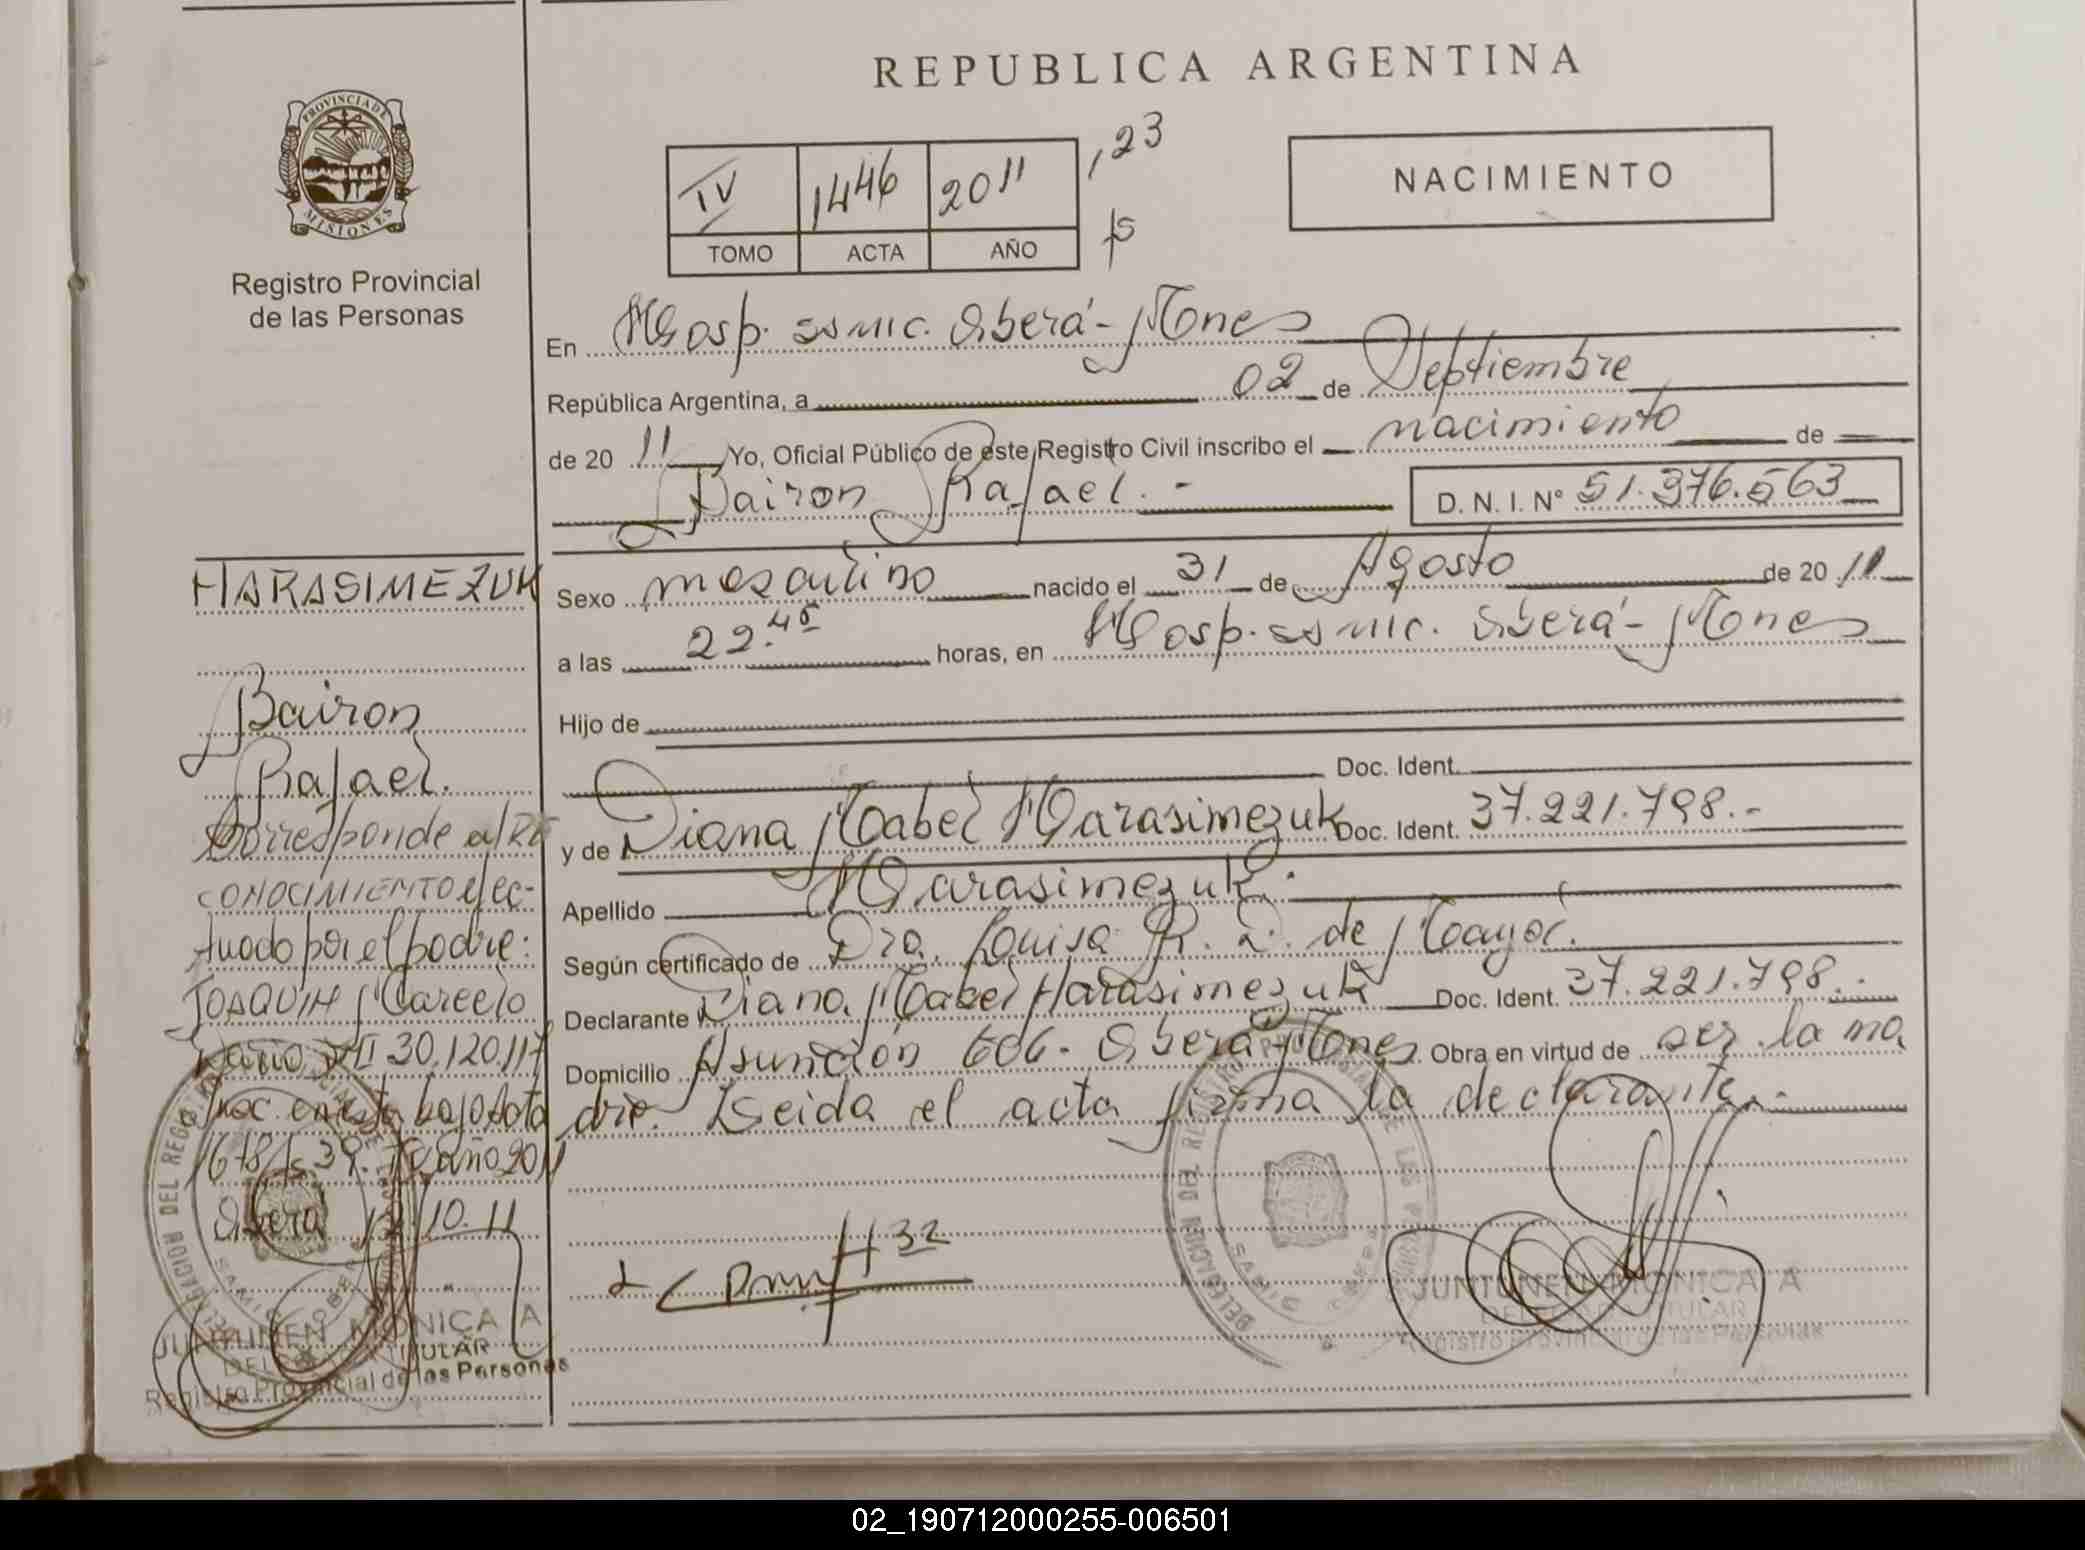 REPUBLICA ARGENTINA
PROVINCIA DE
MISIONES
Registro Provincial
de las Personas
IV 1446 2011 , 23
TOMO ACTA AÑO fs
NACIMIENTO
En Hosp. ssmic. Oberá - Mnes
República Argentina, a 02 de Septiembre
de 20 11 Yo, Oficial Público de este Registro Civil inscribo el nacimiento de
Bairon Rafael. -
D. N. I. Nº 51.376.563
Sexo masculino nacido el 31 de Agosto de 20 11
a las 22.45 horas, en Hosp. ssmic. Oberá - Mnes
Hijo de
Doc. Ident.
y de Diana Mabel Harasimezuk Doc. Ident. 37.221.798.-
Apellido Harasimezuk.
Según certificado de Dra. Louisa R. de Mayol.
Declarante Diana Mabel Harasimezuk Doc. Ident. 37.221.798.-
Domicilio Asunción 606- Oberá Mnes. Obra en virtud de ser la ma
dre. Leida el acta firma la declarante.-
HARASIMEZUK
Bairon
Rafael.
Corresponde a/ RE
CONOCIMIENTO efec-
tuado por el padre:
JOAQUIN Marcelo
30.120.117
bajo Acta
1678 fs 39. año 2011
Oberá 10.11
JUNTUNEN MONICA A
DELEGADA TITULAR
Registro Provincial de las Personas
32
JUNTUNEN MONICA A
DELEGADA TITULAR
Registro Provincial de las Personas
02_190712000255-006501